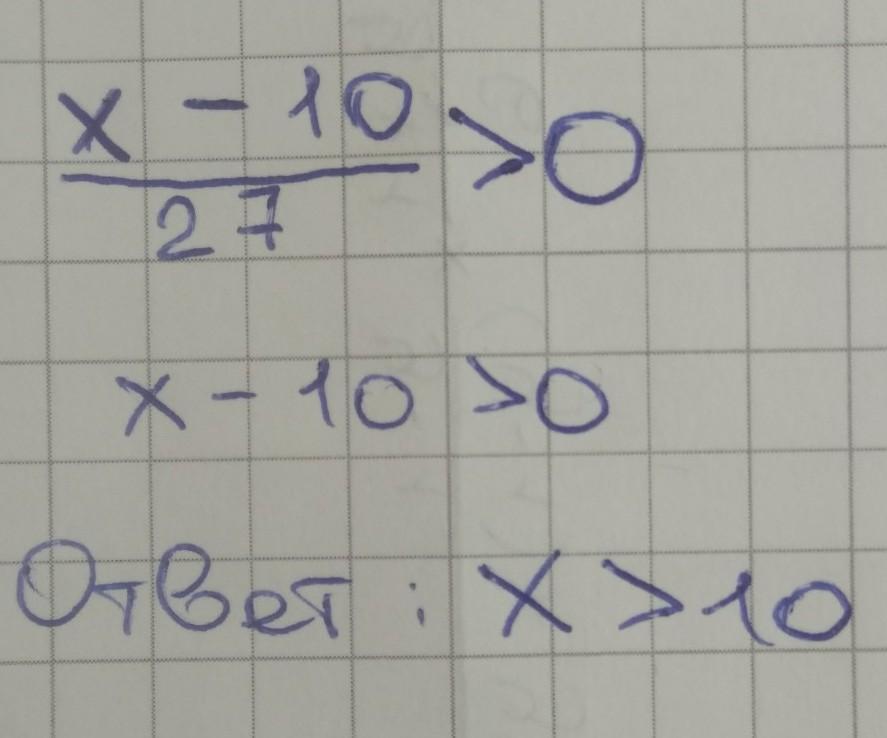 x - 10
27
>0
x - 10 >0
Ответ: x > 10